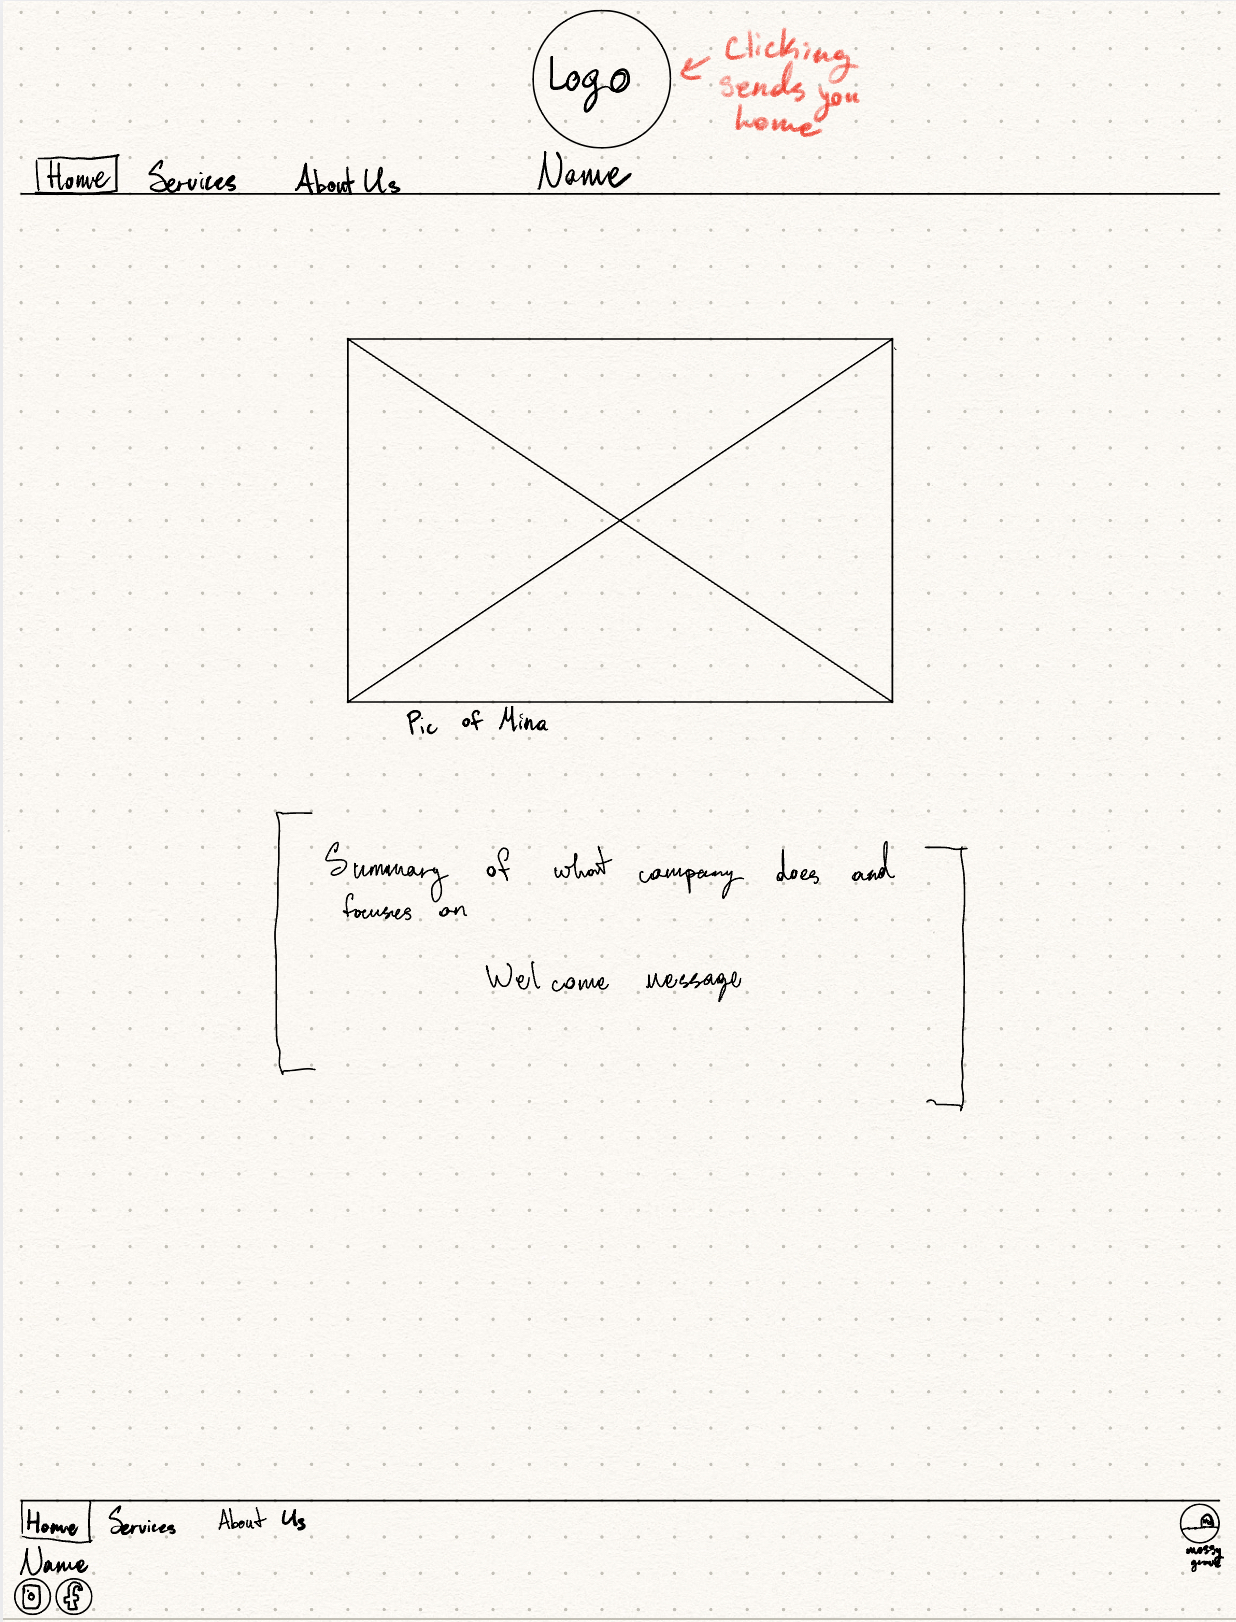 Logo
Clicking
sends you
home
Home Services About Us Name
Pic of Mina
Summary of what company does and
focuses on
Welcome message
Home Services About Us
Name
mossy
grove